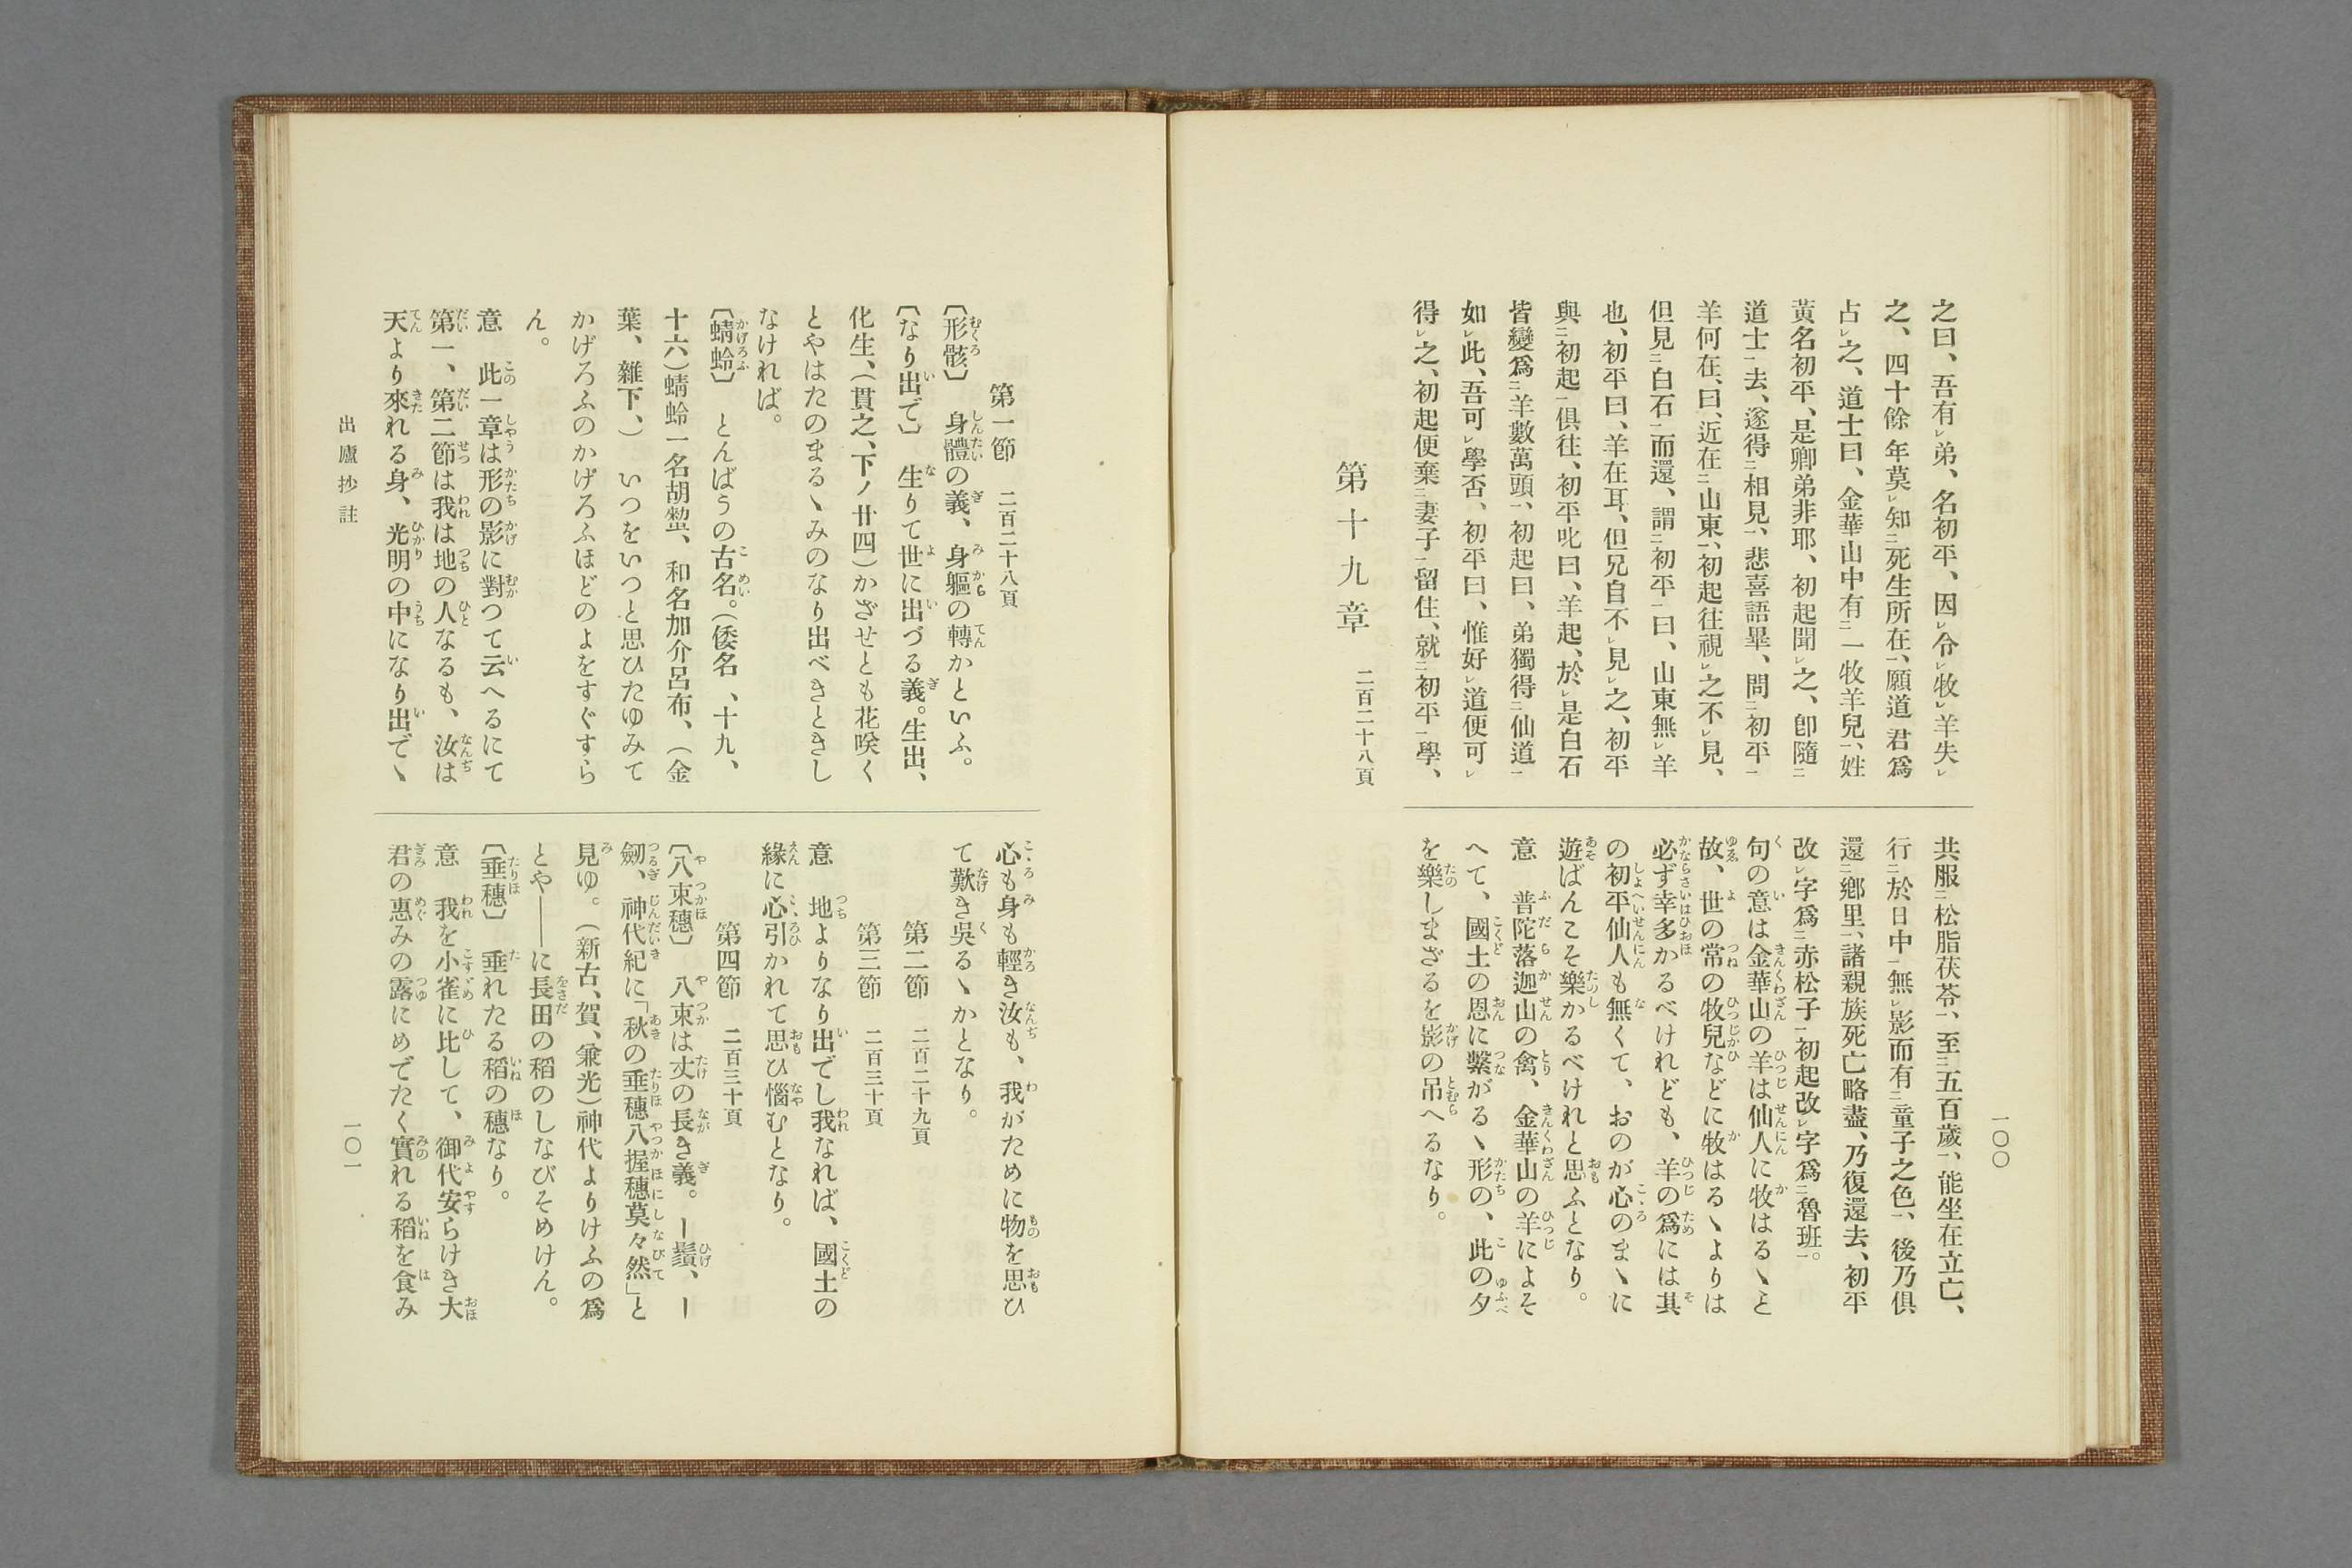 之曰、吾有㆑弟、名初平、因㆑令㆑牧㆑羊失㆑
之、四十餘年莫㆑知㆓死生所在㆒、願道君爲
占㆑之、道士曰、金華山中有㆓一牧羊兒㆒、姓
黃名初平、是卿弟非耶、初起聞㆑之、卽隨㆓
道士㆒去、遂得㆓相見㆒、悲喜語畢、問㆓初平㆒
羊何在、曰、近在㆓山東㆒、初起往視㆑之不㆑見、
但見㆓白石㆒而還、謂㆓初平㆒曰、山東無㆑羊
也、初平曰、羊在耳、但兄自不㆑見㆑之、初平
與㆓初起㆒俱往、初平叱曰、羊起、於㆑是白石
皆變爲㆓羊數萬頭㆒、初起曰、弟獨得㆓仙道㆒
如㆑此、吾可㆑學否、初平曰、惟好㆑道便可㆑
得㆑之、初起便棄㆓妻子㆒留住、就㆓初平㆒學、
共服㆓松脂茯苓㆒、至㆓五百歲㆒、能坐在立亡、
行㆓於日中㆒無㆑影而有㆓童子之色㆒、後乃俱
還㆓鄕里㆒、諸親族死亡略盡、乃復還去、初平
改㆑字爲㆓赤松子㆒初起改㆑字爲㆓魯班㆒。
句の意は金華山の羊は仙人に牧はるゝと
故、世の常の牧兒などに牧はるゝよりは
必ず幸多かるべけれども、羊の爲には其
の初平仙人も無くて、おのが心のまゝに
遊ばんこそ樂かるべけれと思ふとなり。
意　普陀落迦山の禽、金華山の羊によそ
へて、國土の恩に繫がるゝ形の、此の夕
を樂しまざるを影の吊へるなり。
第十九章　二百二十八頁
一〇〇
第一節　二百二十八頁
〔形骸〕　身體の義、身軀の轉かといふ。
〔なり出で〕　生りて世に出づる義。生出、
化生、（貫之、下ノ廿四）かざせとも花咲く
とやはたのまるゝみのなり出べきときし
なければ。
〔蜻蛉〕　とんばうの古名。（倭名、十九、
十六）蜻蛉一名胡蝥、和名加介呂布、（金
葉、雜下、）　いつをいつと思ひたゆみて
かげろふのかげろふほどのよをすぐすら
ん。
意　此一章は形の影に對つて云へるにて
第一、第二節は我は地の人なるも、汝は
天より來れる身、光明の中になり出でゝ
心も身も輕き汝も、我がために物を思ひ
て歎き吳るゝかとなり。
第二節　二百二十九頁
第三節　二百三十頁
意　地よりなり出でし我なれば、國土の
緣に心引かれて思ひ惱むとなり。
第四節　二百三十頁
〔八束穗〕　八束は丈の長き義。ー鬚、ー
劒、神代紀に「秋の垂穗八握穗莫々然」と
見ゆ。（新古、賀、兼光）神代よりけふの爲
とや――に長田の稻のしなびそめけん。
〔垂穗〕　垂れたる稻の穗なり。
意　我を小雀に比して、御代安らけき大
君の惠みの露にめでたく實れる稻を食み
出廬抄註
一〇一